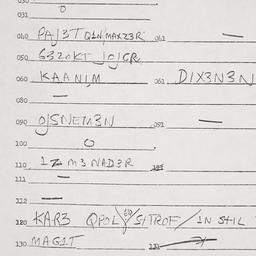 030 0
031
040 PAJ3T Q1N/MAXZ3R 041 —
050 G3Z0KT JOJGR
060 KAANIM 061 D1X3N3N
080 —
090 OJSNEM3N 091 —
100 0
110 1Z M3NAD3R
111 —
112 —
120 KAR3 QPOL / SITROF / 1N STIL
130 MAG1T 131